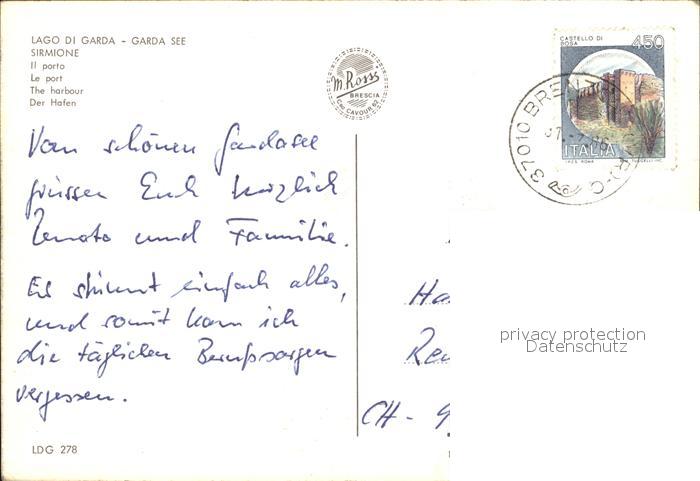 LAGO DI GARDA - GARDA SEE
SIRMIONE
Il porto
Le port
The harbour
Der Hafen
M. Rossi
BRESCIA
C.SO CAVOUR 62
CASTELLO DI
BOSA
450
ITALIA
I.P.Z.S. ROMA
37010 BRENZ
Vom schönen Gardasee
grüssen Euch herzlich
Renato und Familie.
Es stimmt einfach alles,
und somit kann ich
die täglichen Berufssorgen
vergessen.
Ha
Re
CH - 9
privacy protection
Datenschutz
LDG 278